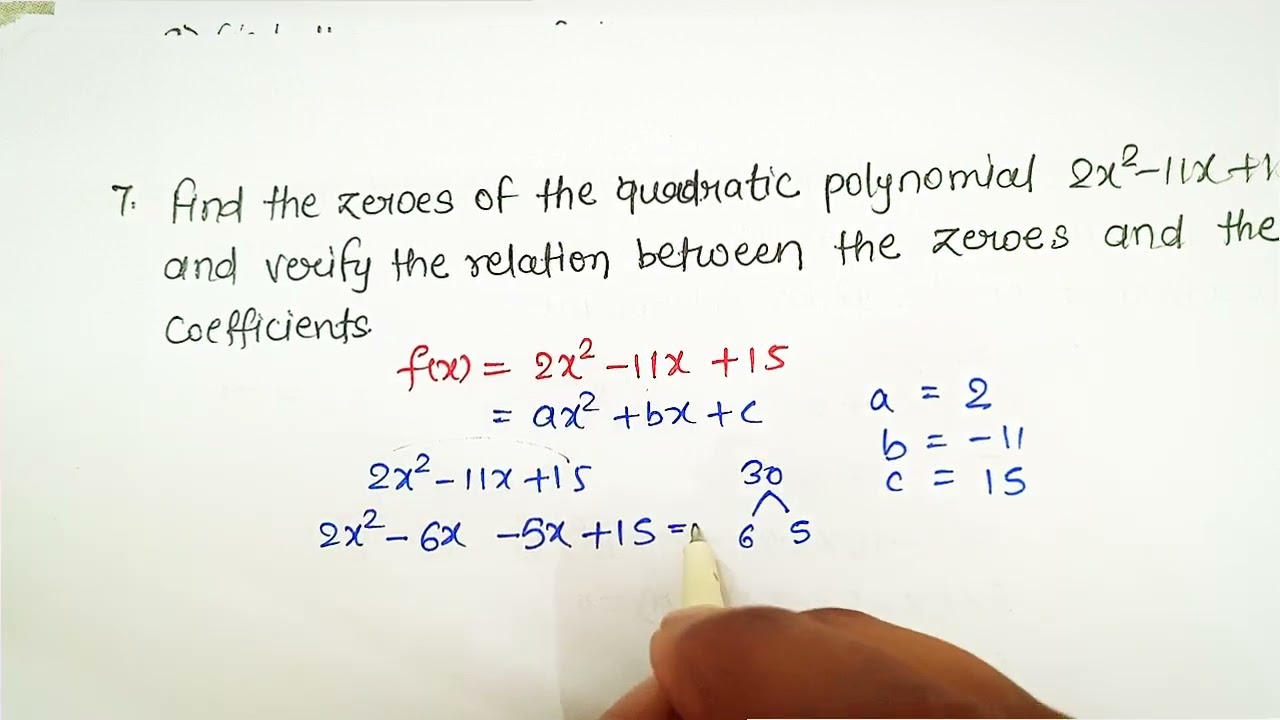 7. Find the zeroes of the quadratic polynomial 2x²-11x+
and verify the relation between the zeroes and the
coefficients.
f(x) = 2x² -11x +15
= ax² +bx+c
a = 2
b = -11
2x²-11x+15
30
c = 15
2x²- 6x -5x+15 =
6 5